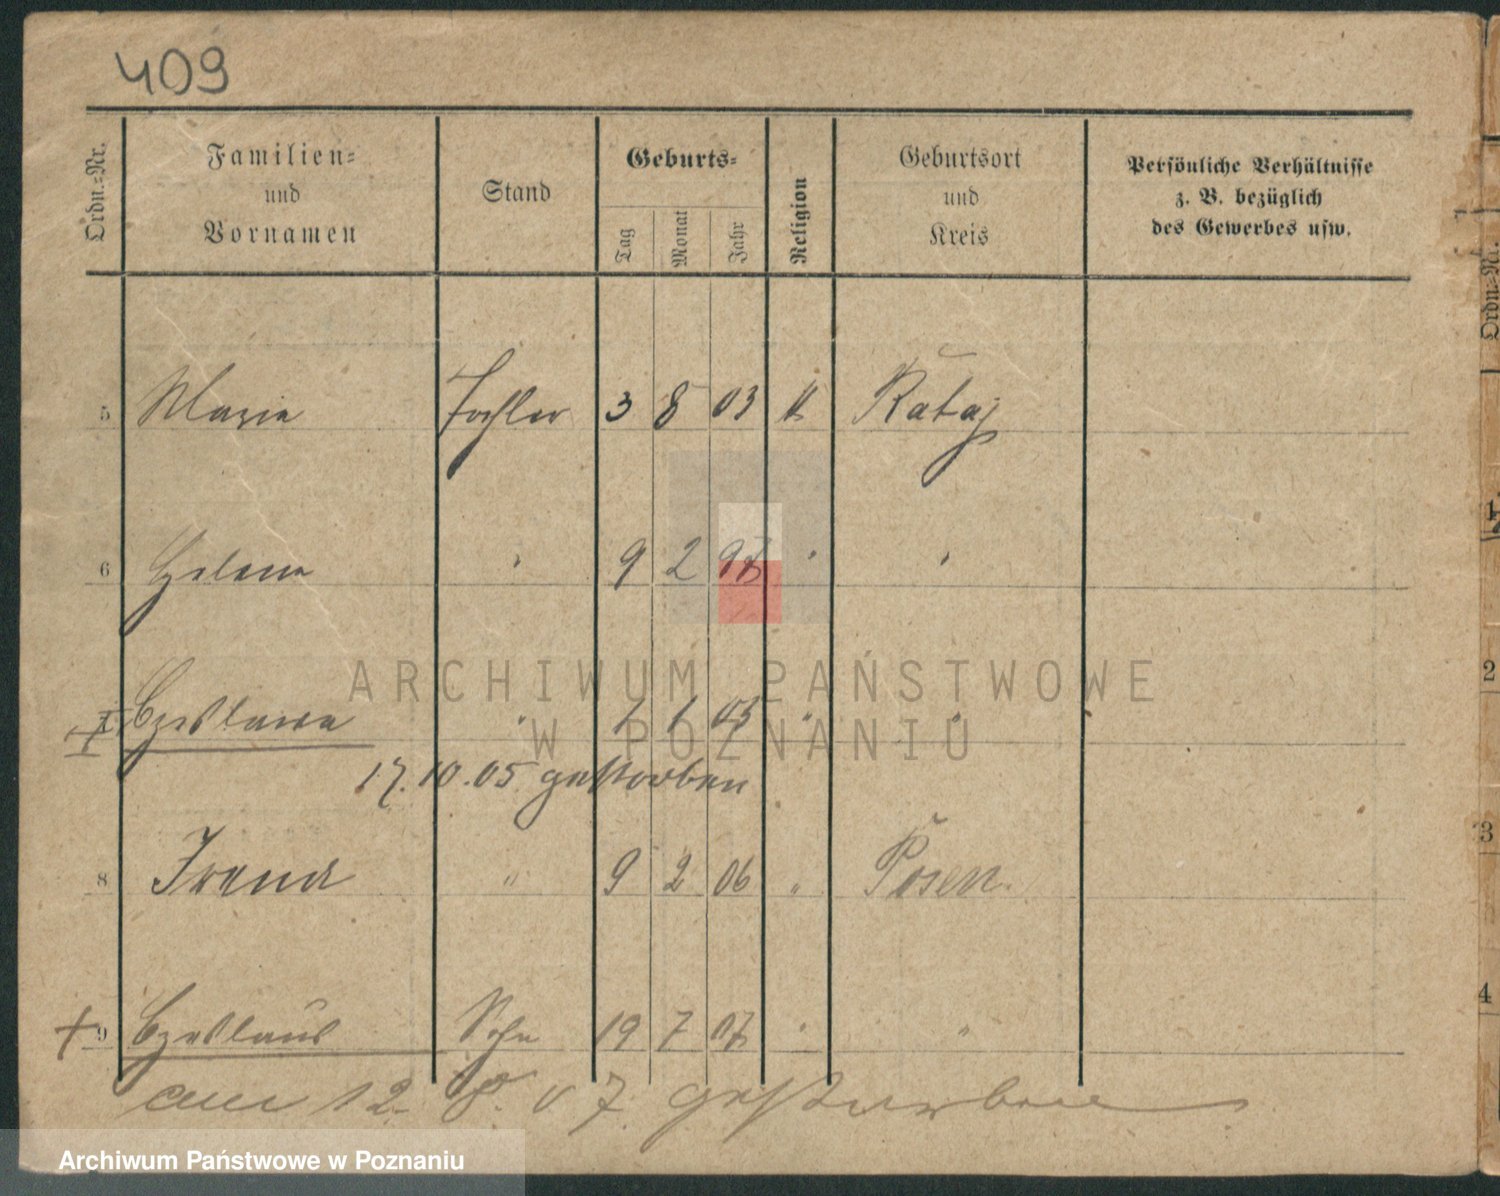 409
Ordn.-Nr.
Familien-
und
Vornamen
Stand
Geburts-
Tag
Monat
Jahr
Religion
Geburtsort
und
Kreis
Persönliche Verhältnisse
z. B. bezüglich
des Gewerbes usw.
5 Marie Tochter 3 8 03 k Rataj
6 Helena " 9 2 " "
Czeslawa " 1 1 03 " "
17.10.05 gestorben
8 Irena " 9 2 06 " Posen
+ 9 Czeslaus Sohn 19 7 07 " "
am 12. 8. 07. gestorben
ARCHIWUM PAŃSTWOWE
W POZNANIU
Archiwum Państwowe w Poznaniu
Ordn.-Nr.
1
2
3
4